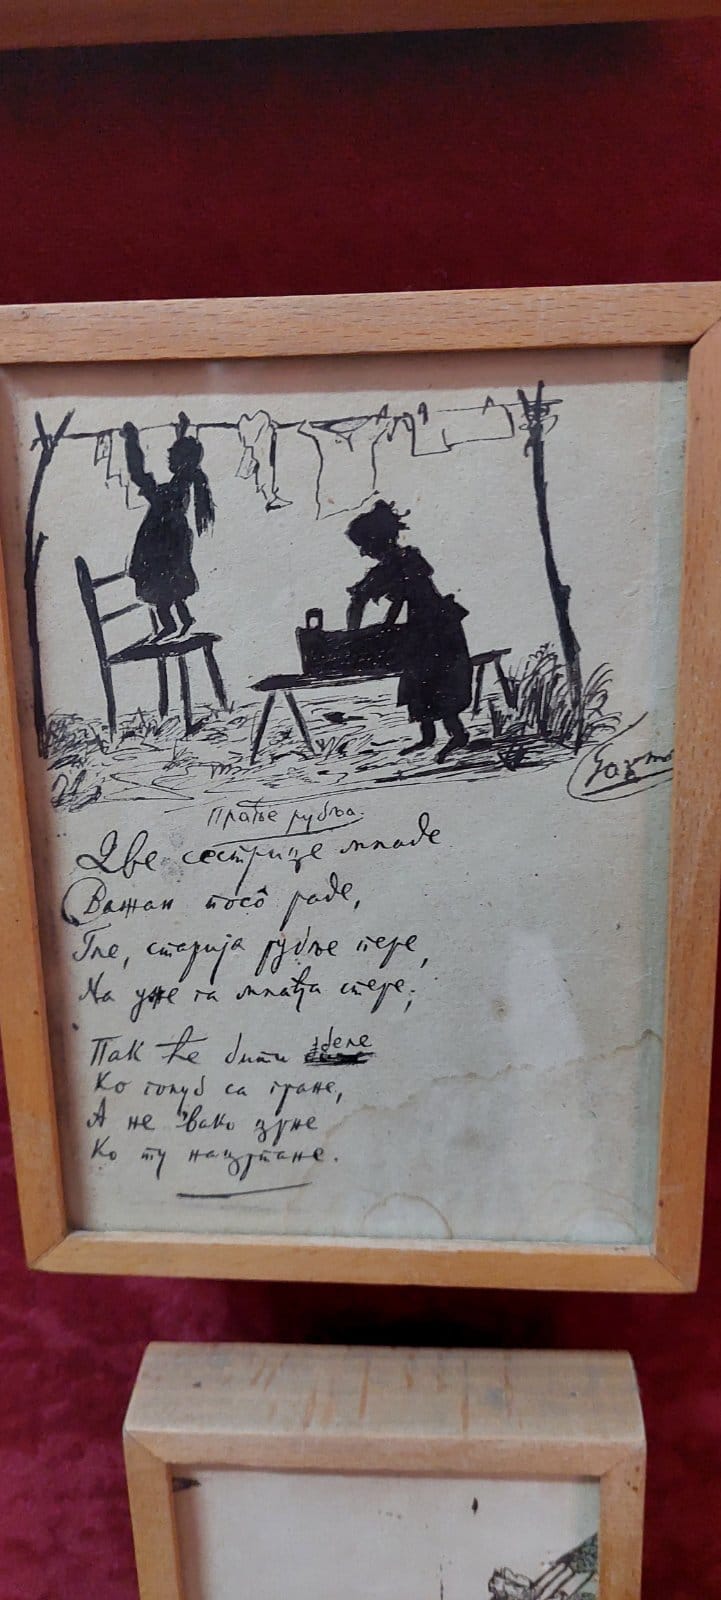 Прање рубља
Две сестрице младе
Важан посô раде,
Гле, старија рубље пере,
На уже га млађа стере;
Пак ће бити беле
Ко голуб са гране,
А не 'вако зрне
Ко ту нацртане.